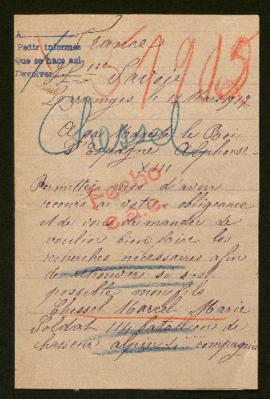 Pedir informes
Que se haga así
Devolver
France
51915
Savoie
le 12 Mars 1917
Chossel
A sa Majesté le Roi
D'Espagne Alphonse
XIII
Fecho
Permettez moi d'avoir
recours à votre obligeance
et de vous demander de
vouloir bien faire les
recherches nécessaires afin
de si c'est
possible mon fils
Chossel Marcel Marie
Soldat 114 bataillon de
chasseurs alpins compagnie